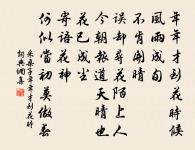 年年才到花時候
風雨成旬
不肯開晴
误却尋花陌上人
今朝報道天晴也
花已成塵
寄語花神
何似當初莫做春
采桑子年年才到花時
詞典網集